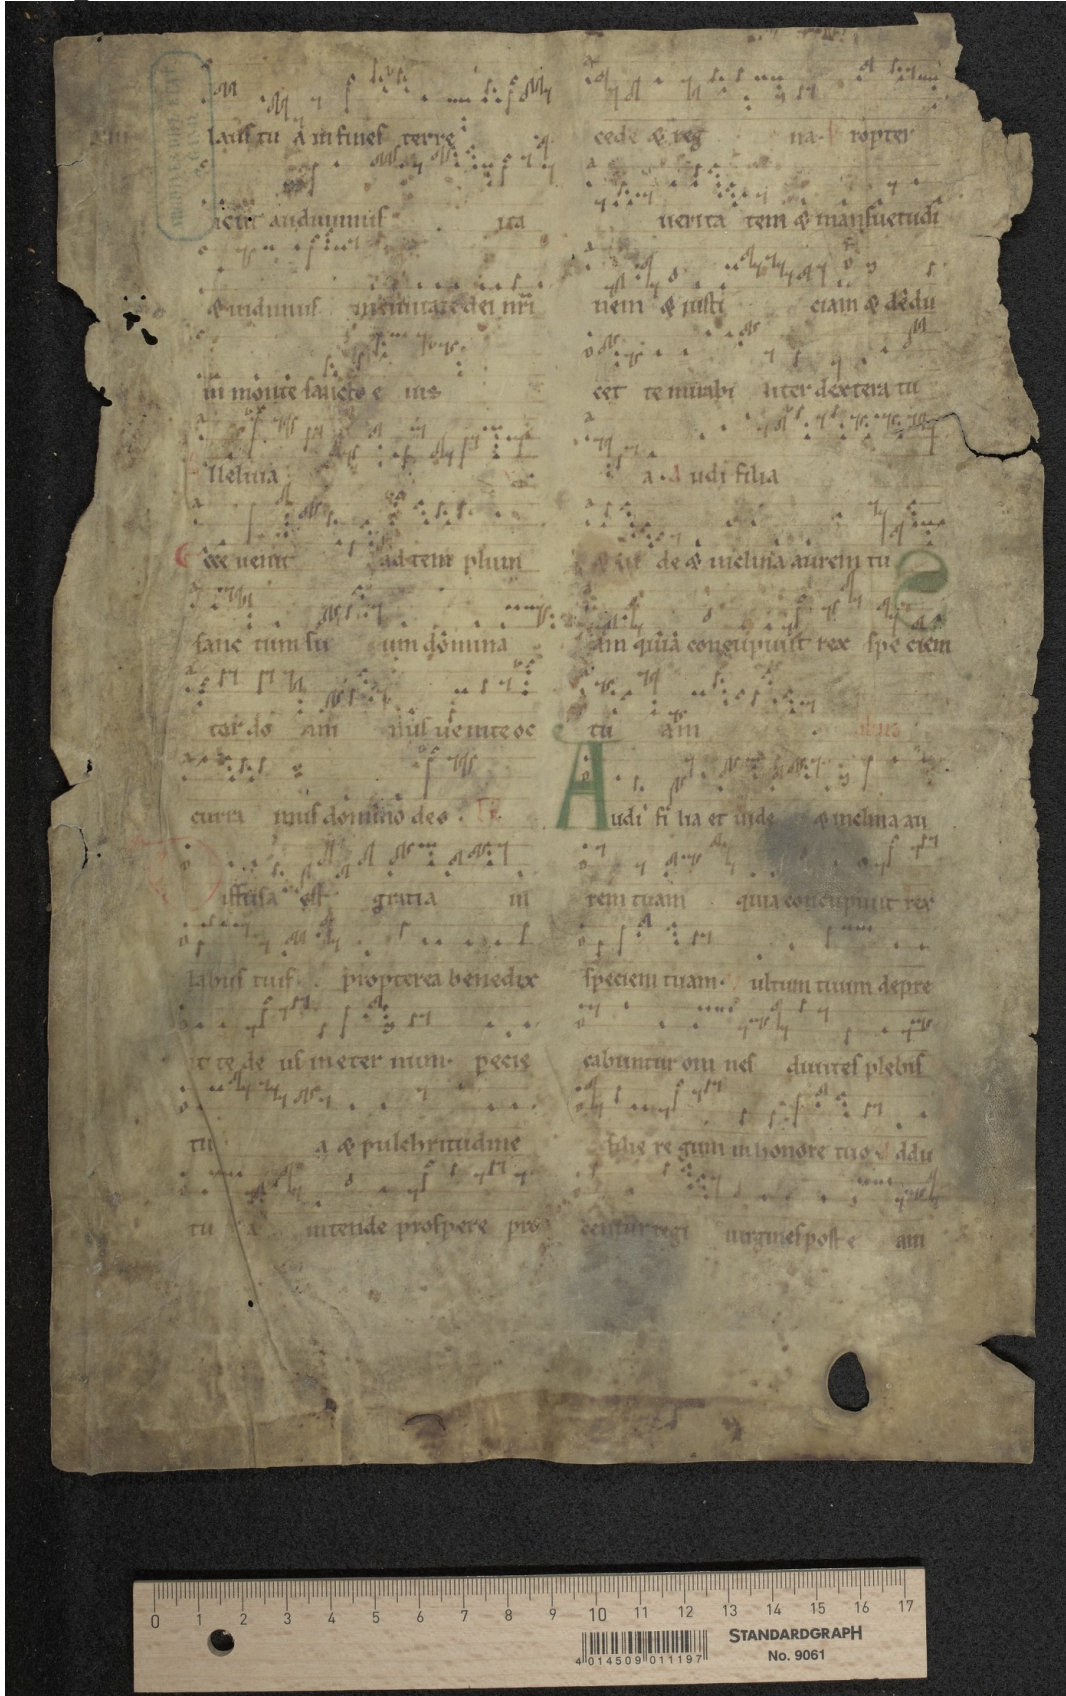 laus tu a in fines terre
audiuimus ita
& uidimus in ciuitate dei nr̄i
in monte sancto e ius
lleluia
cce uenit ad tem plum
sanc tum su um domina
tor do am nus uenite oc
curra mus domino deo TR
iffusa est gratia in
labiis tuis propterea benedix
it te de us in eter num pecie
tu a & pulchritudine
tu a intende prospere pro
cede & reg na ropter
uerita tem & mansuetudi
nem & iusti ciam & dedu
cet te mirabi liter dextera tu
a A udi filia
& ui de & inclina aurem tu
am quia concupiuit rex spe ciem
tu am
Audi fi lia et uide & inclina au
rem tuam quia concupiuit rex
speciem tuam ultum tuum depre
cabuntur om nes diuites plebis
filie re gum in honore tuo A ddu
centur regi uirgines post e am
0 1 2 3 4 5 6 7 8 9 10 11 12 13 14 15 16 17
STANDARDGRAPH
No. 9061
4 014509 011197